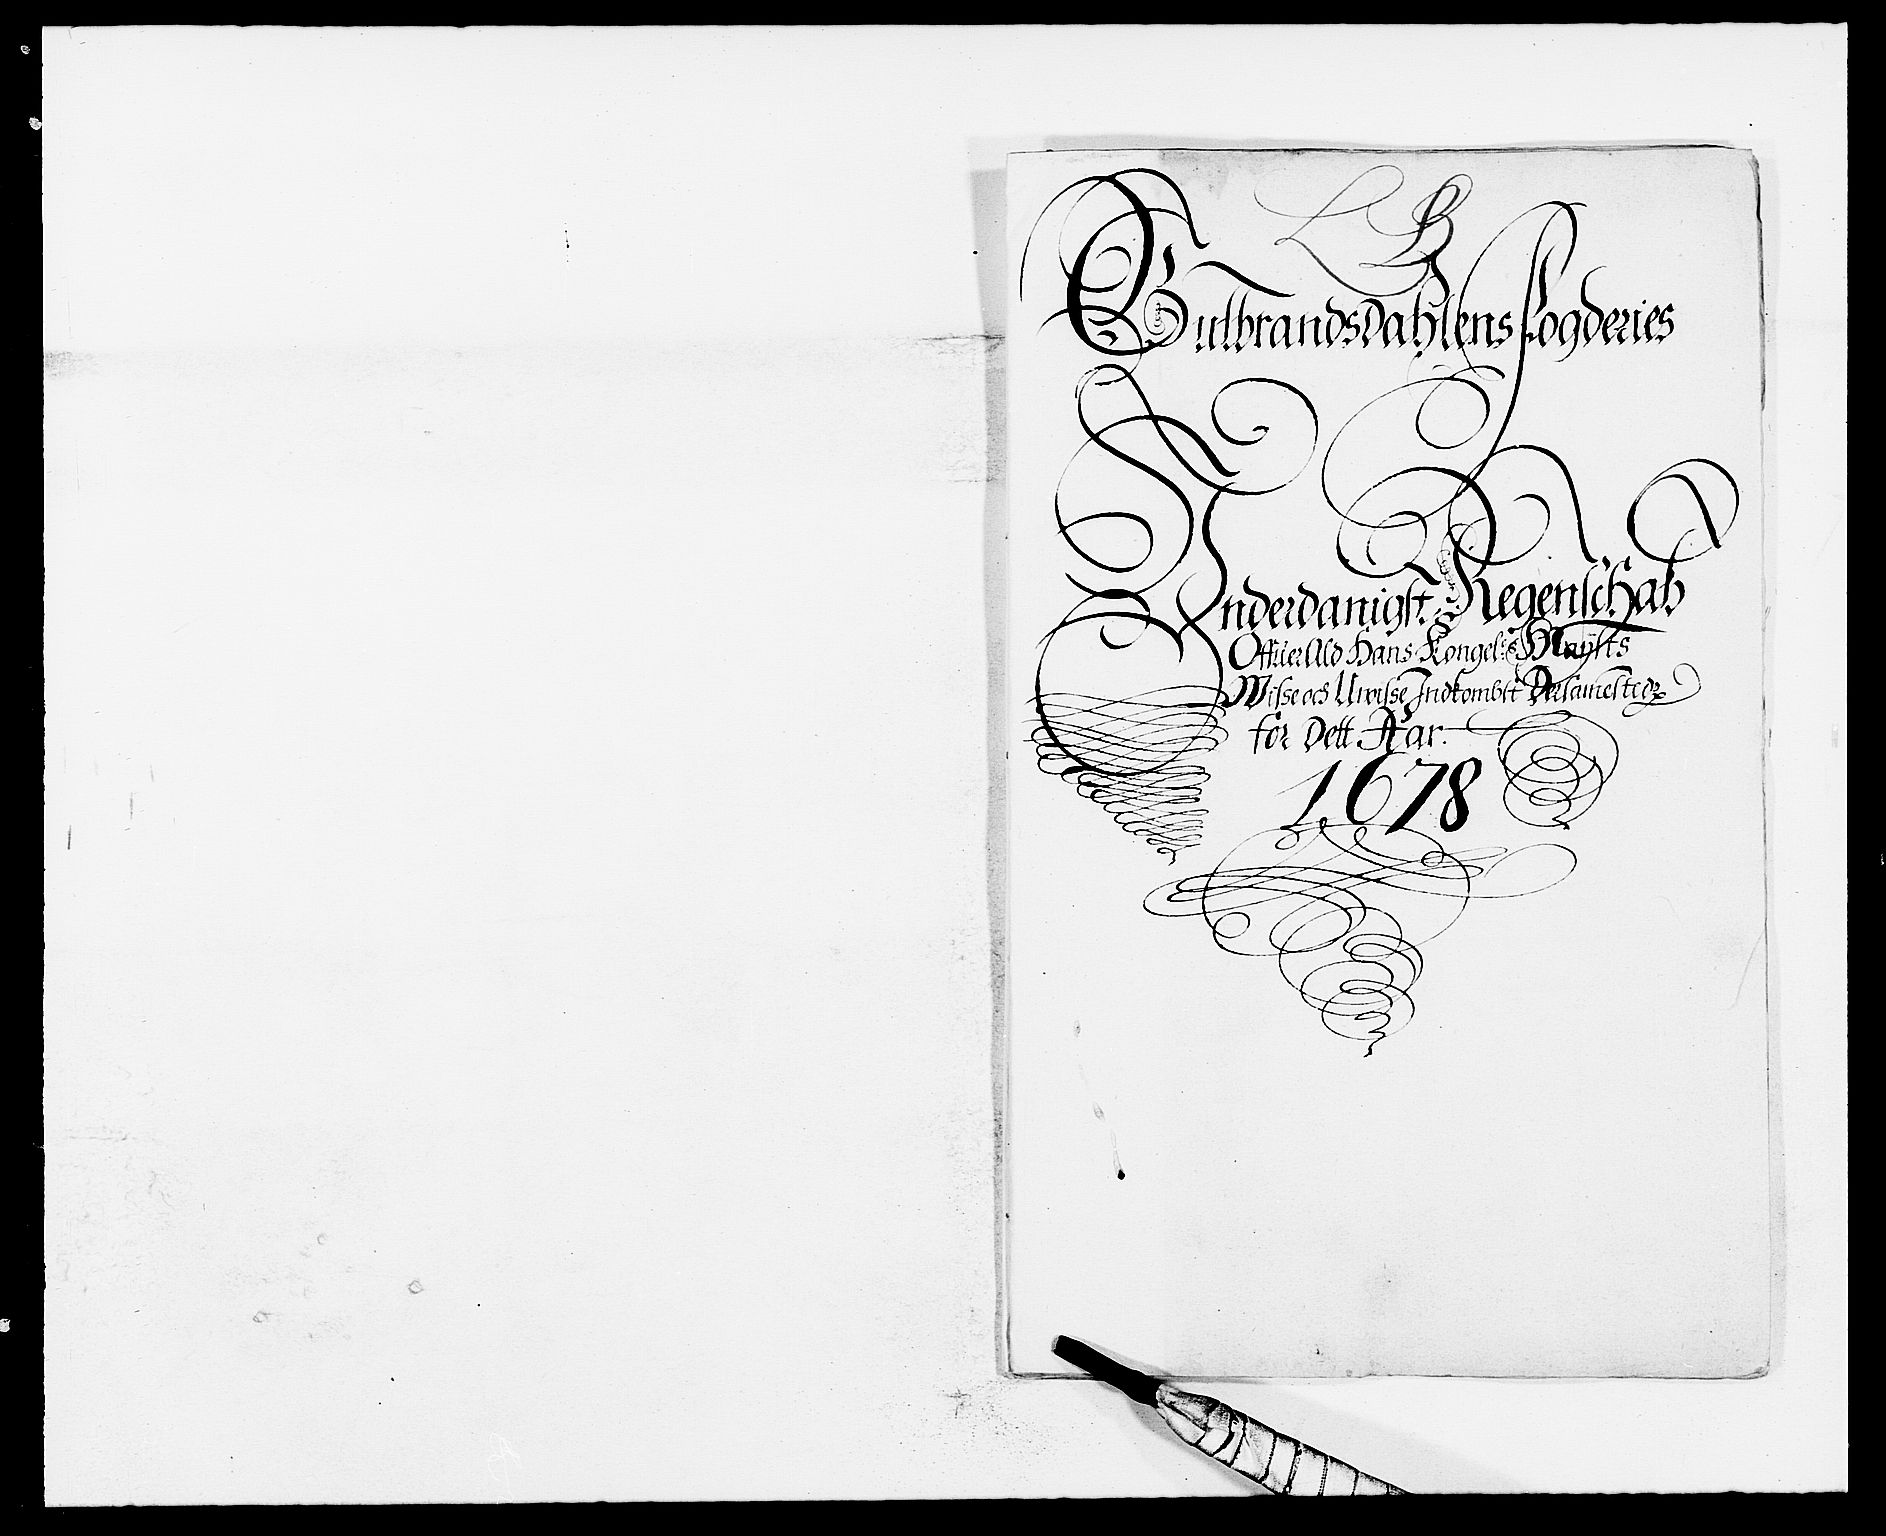 L B
Gulbrandsdahlens Fogderies
Underdanigst Regenschab
Offuer Ald Hans Kongel: Mayts
Wisse och Uwisse Indkombst
for Dett Aar.
1678